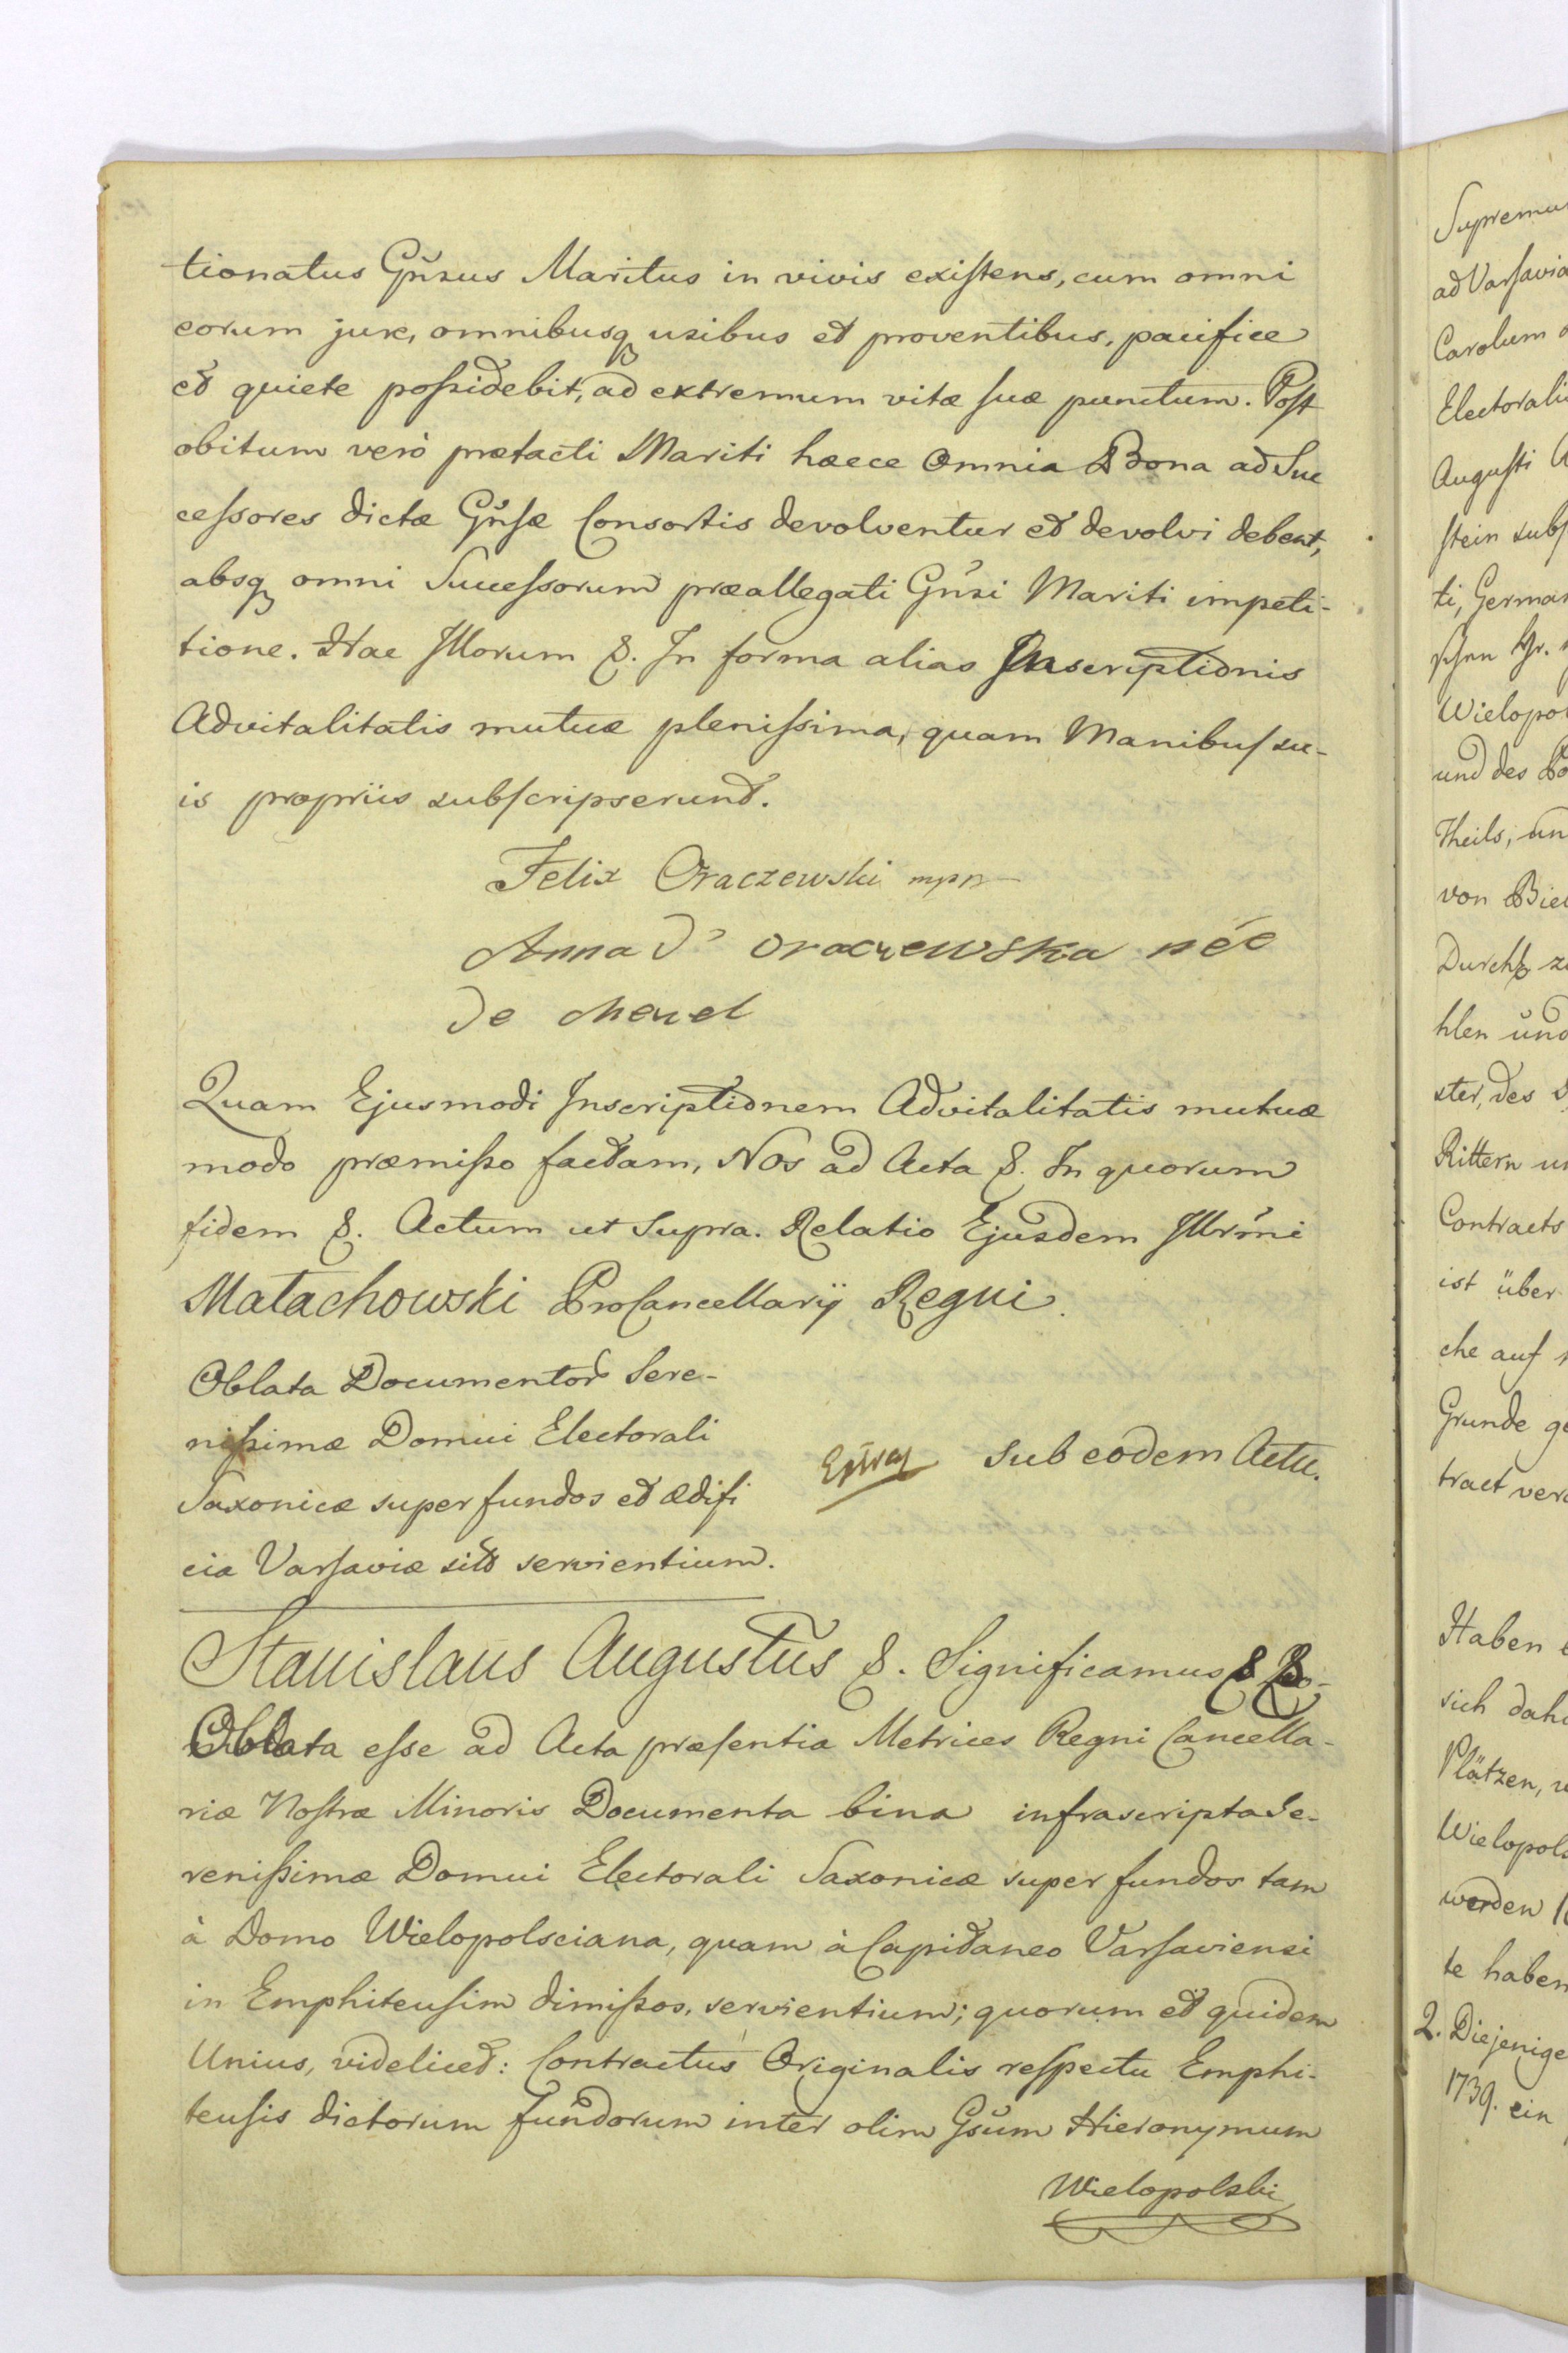 tionatus Gnsus Maritus in vivis existens, cum omni
eorum jure, omnibusq usibus et proventibus, pacifice
et quiete possidebit, ad extremum vitæ suæ punctum. Post
obitum verò prætacti Mariti hæcce Omnia Bona ad Suc
cessores dictæ Gnsæ Consortis devolventur et devolvi debent,
absq omni Successorum præallegati Gnsi Mariti impeti-
tione. Hac Illorum &. In forma alias Inscriptionis
Advitalitatis mutuæ plenissima, quam Manibus su-
is propriis subscripserunt.
Felix Oraczewski mpp
Anna d' oraczewska née
de
Quam Ejusmodi Inscriptionem Advitalitatis mutuæ
modo præmisso factam, Nos ad Acta &. In quorum
fidem &. Actum ut supra. Relatio Ejusdem Illrmi
Małachowski ProCancellarij Regni.
Oblata Documentor Sere-
nissimæ Domui Electorali
Saxonicæ super fundos et ædifi
cia Varsaviæ sita servientium.
sub eodem Actu.
Stanislaus Augustus &. Significamus &
Oblata esse ad Acta præsentia Metrices Regni Cancella-
riæ Nostræ Minoris Documenta bina infrascripta Se-
renissimæ Domui Electorali Saxonicæ super fundos tam
à Domo Wielopolsciana, quam à Capitaneo Varsaviensi
in Emphiteusim dimissos, servientium; quorum et quidem
Unius, videlicet: Contractus Originalis respectu Emphi-
teusis dictorum fundorum inter olim Gsum Hieronymum
Wielopolski
Supremu
ad Varsavia
Carolum
Electorali
Augusti A
stein subs
ti, German
schen Hr.
Wielopol
und des Po
Theils, un
von Biel
Durchl zu
hlen und
ster, des
Rittern un
Contracts
ist über
che auf
Grunde ge
tract ver
Haben
sich dah
Plätzen,
Wielopols
werden
te haben
2. Diejenige
1739. ein